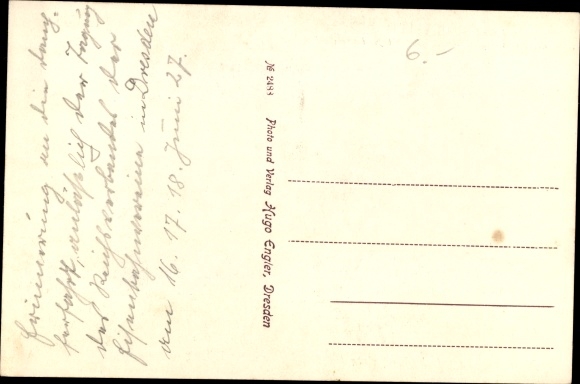 Erinnerung an die Damp-
ferfahrt, anläßlich der Tagung
des Reichsverbandes der
Eisenbahnvereine in Dresden
am 16. 17. 18. Juni 27.
№ 2444 Photo und Verlag Hugo Engler, Dresden
6.–